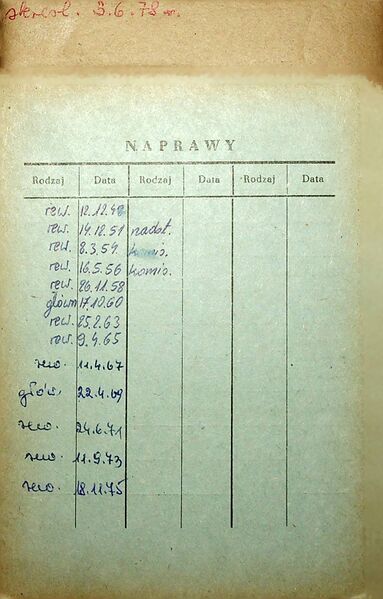 skreśl. 3.6.78 r.
NAPRAWY
Rodzaj Data Rodzaj Data Rodzaj Data
rew. 12.12.49
rew. 14.12.51 nadat.
rew. 8.3.54 komis.
rew. 16.5.56 komis.
rew. 26.11.58
główn 17.10.60
rew. 25.2.63
rew. 9.4.65
rew. 11.4.67
głów. 22.4.69
rew. 24.6.71
rew. 11.9.73
rew. 18.11.75